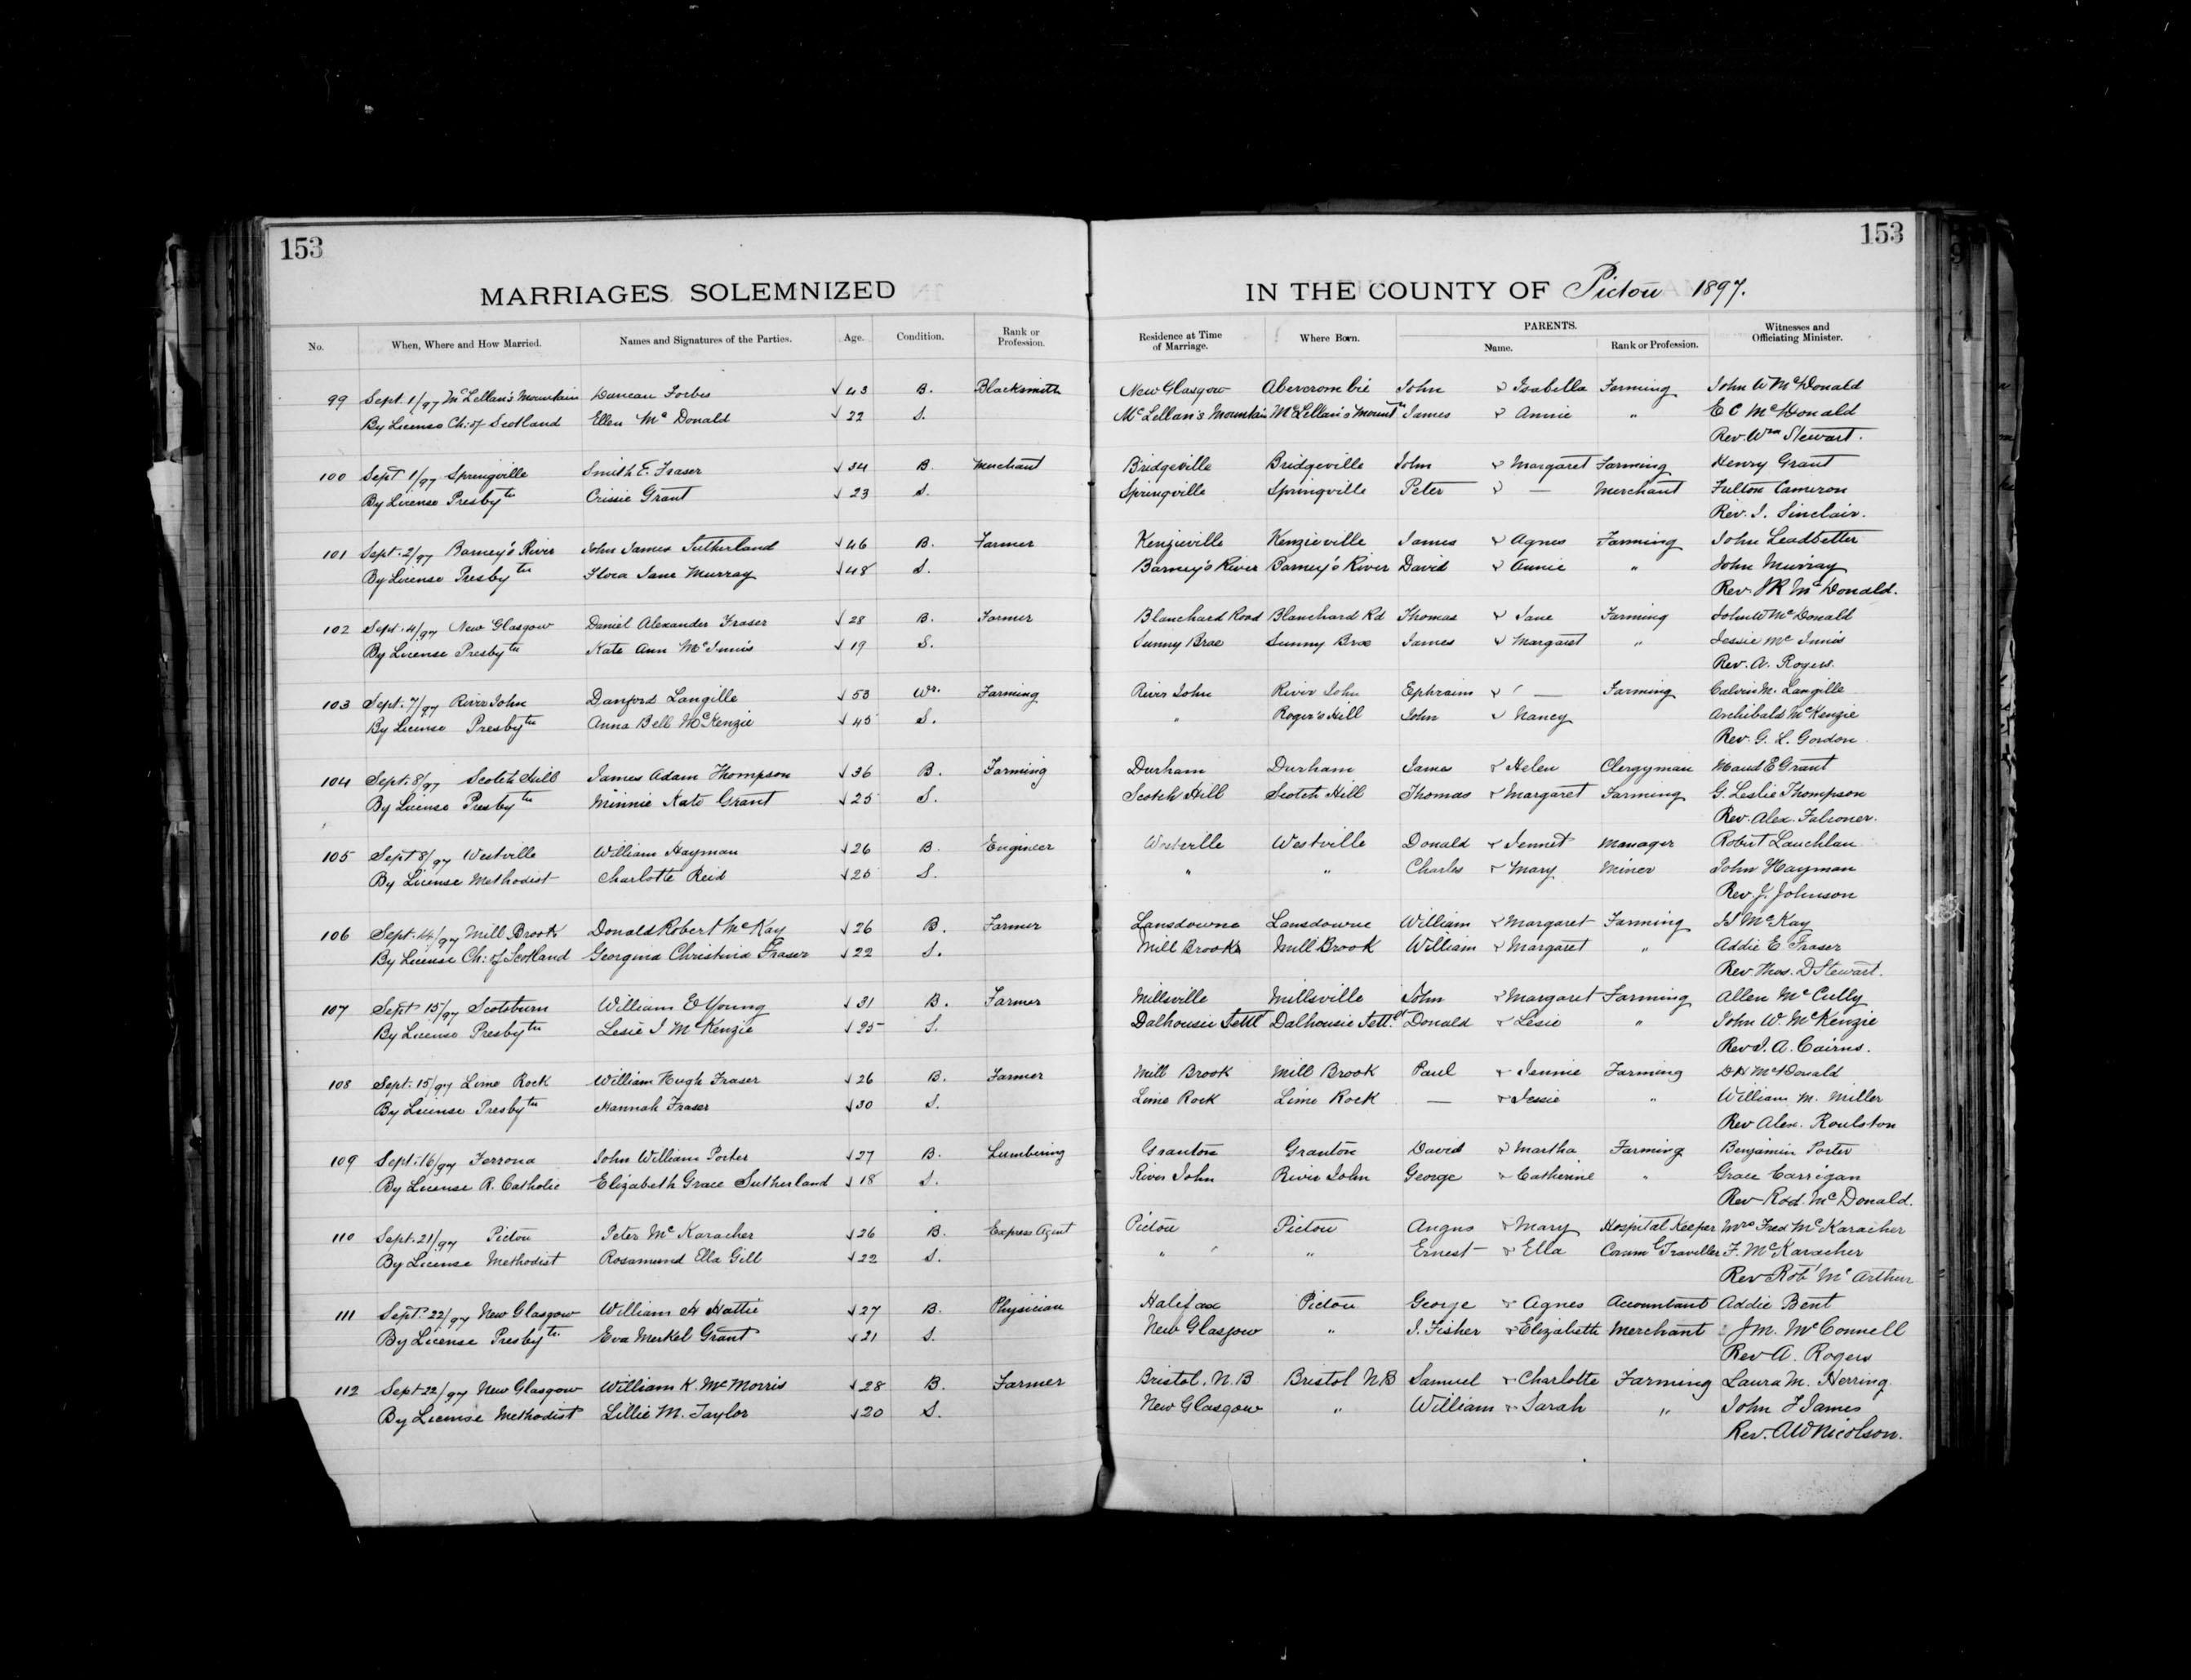 153
153
MARRIAGES SOLEMNIZED IN THE COUNTY OF Pictou 1897.
No. When, Where and How Married. Names and Signatures of the Parties. Age. Condition. Rank or Profession. Residence at Time of Marriage. Where Born. PARENTS. Name. Rank or Profession. Witnesses and Officiating Minister.
99 Sept. 1/97 McLellan's Mountain Duncan Forbes √ 43 B. Blacksmith New Glasgow Abercrombie John & Isabella Farming John W McDonald
By License Ch: of Scotland Ellen McDonald √ 22 S. McLellan's Mountain McLellan's Mountn James & Annie " E C McDonald
Rev. Wm Stewart.
100 Sept 1/97 Springville Smith E. Fraser √ 34 B. Merchant Bridgeville Bridgeville John & Margaret Farming Henry Grant
By License Presbytn Crissie Grant √ 23 S. Springville Springville Peter & — Merchant Fulton Cameron
Rev. I. Sinclair.
101 Sept. 2/97 Barney's River John James Sutherland √ 46 B. Farmer Kenzieville Kenzieville James & Agnes Farming John Leadbetter
By License Presbytn Flora Jane Murray √ 48 S. Barney's River Barney's River David & Annie " John Murray
Rev. JR McDonald.
102 Sept. 4/97 New Glasgow Daniel Alexander Fraser √ 28 B. Farmer Blanchard Road Blanchard Rd Thomas & Jane Farming John W McDonald
By License Presbytn Kate Ann McInnis √ 19 S. Sunny Brae Sunny Brae James & Margaret " Jessie McInnis
Rev. A. Rogers.
103 Sept. 7/97 River John Danford Langille √ 53 Wr. Farming River John River John Ephraim & — Farming Calvin M. Langille
By License Presbytn Anna Bell McKenzie √ 45 S. " Roger's Hill John & Nancy Archibald McKenzie
Rev. G. L. Gordon
104 Sept. 8/97 Scotch Hill James Adam Thompson √ 36 B. Farming Durham Durham James & Helen Clergyman Maud E Grant
By License Presbytn Minnie Kate Grant √ 25 S. Scotch Hill Scotch Hill Thomas & Margaret Farming G. Leslie Thompson
Rev. Alex. Falconer.
105 Sept 8/97 Westville William Hayman √ 26 B. Engineer Westville Westville Donald & Jennet Manager Robert Lauchlan
By License Methodist Charlotte Reid √ S. " " Charles & Mary Miner John Hayman
Rev. J. Johnson
106 Sept. 14/97 Mill Brook Donald Robert McKay √ 26 B. Farmer Lansdowne Lansdowne William & Margaret Farming McKay
By License Ch: of Scotland Georgina Christina Fraser √ 22 S. Mill Brook Mill Brook William & Margaret " Addie E Fraser
Rev Thos. D Stewart.
107 Sept 15/97 Scotsburn William E Young √ 31 B. Farmer Millsville Millsville John & Margaret Farming Allen McCully
By License Presbytn Lesie J McKenzie √ 25 S. Dalhousie Settl Dalhousie Settlet Donald & Lesie " John W. McKenzie
Rev J. A. Cairns.
108 Sept. 15/97 Lime Rock William Hugh Fraser √ 26 B. Farmer Mill Brook Mill Brook Paul & Jennie Farming DH McDonald
By License Presbytn Hannah Fraser √ 30 S. Lime Rock Lime Rock — & Jessie " William M. Miller
Rev Alex. Roulston
109 Sept. 16/97 Ferrona John William Porter √ 27 B. Lumbering Granton Granton David & Martha Farming Benjamin Porter
By License R. Catholic Elizabeth Grace Sutherland √ 18 S. River John River John George & Catherine " Grace Carrigan
Rev Rod. McDonald.
110 Sept. 21/97 Pictou Peter McKaracher √ 26 B. Express Agent Pictou Pictou Angus & Mary Hospital Keeper Mrs Fred McKaracher
By License Methodist Rosamund Ella Gill √ 22 S. " " Ernest & Ella Comml Traveller F. McKaracher
Rev Robt McArthur
111 Sept. 22/97 New Glasgow William H Hattie √ 27 B. Physician Halifax Pictou George & Agnes Accountant Addie Bent
By License Presbytn Eva Merkel Grant √ 21 S. New Glasgow " J. Fisher & Elizabeth Merchant J M. McConnell
Rev A. Rogers
112 Sept 22/97 New Glasgow William K. McMorris √ 28 B. Farmer Bristol, N.B Bristol N.B Samuel & Charlotte Farming Laura M. Herring
By License Methodist Lillie M. Taylor √ 20 S. New Glasgow " William & Sarah " John F James
Rev. AW Nicolson.